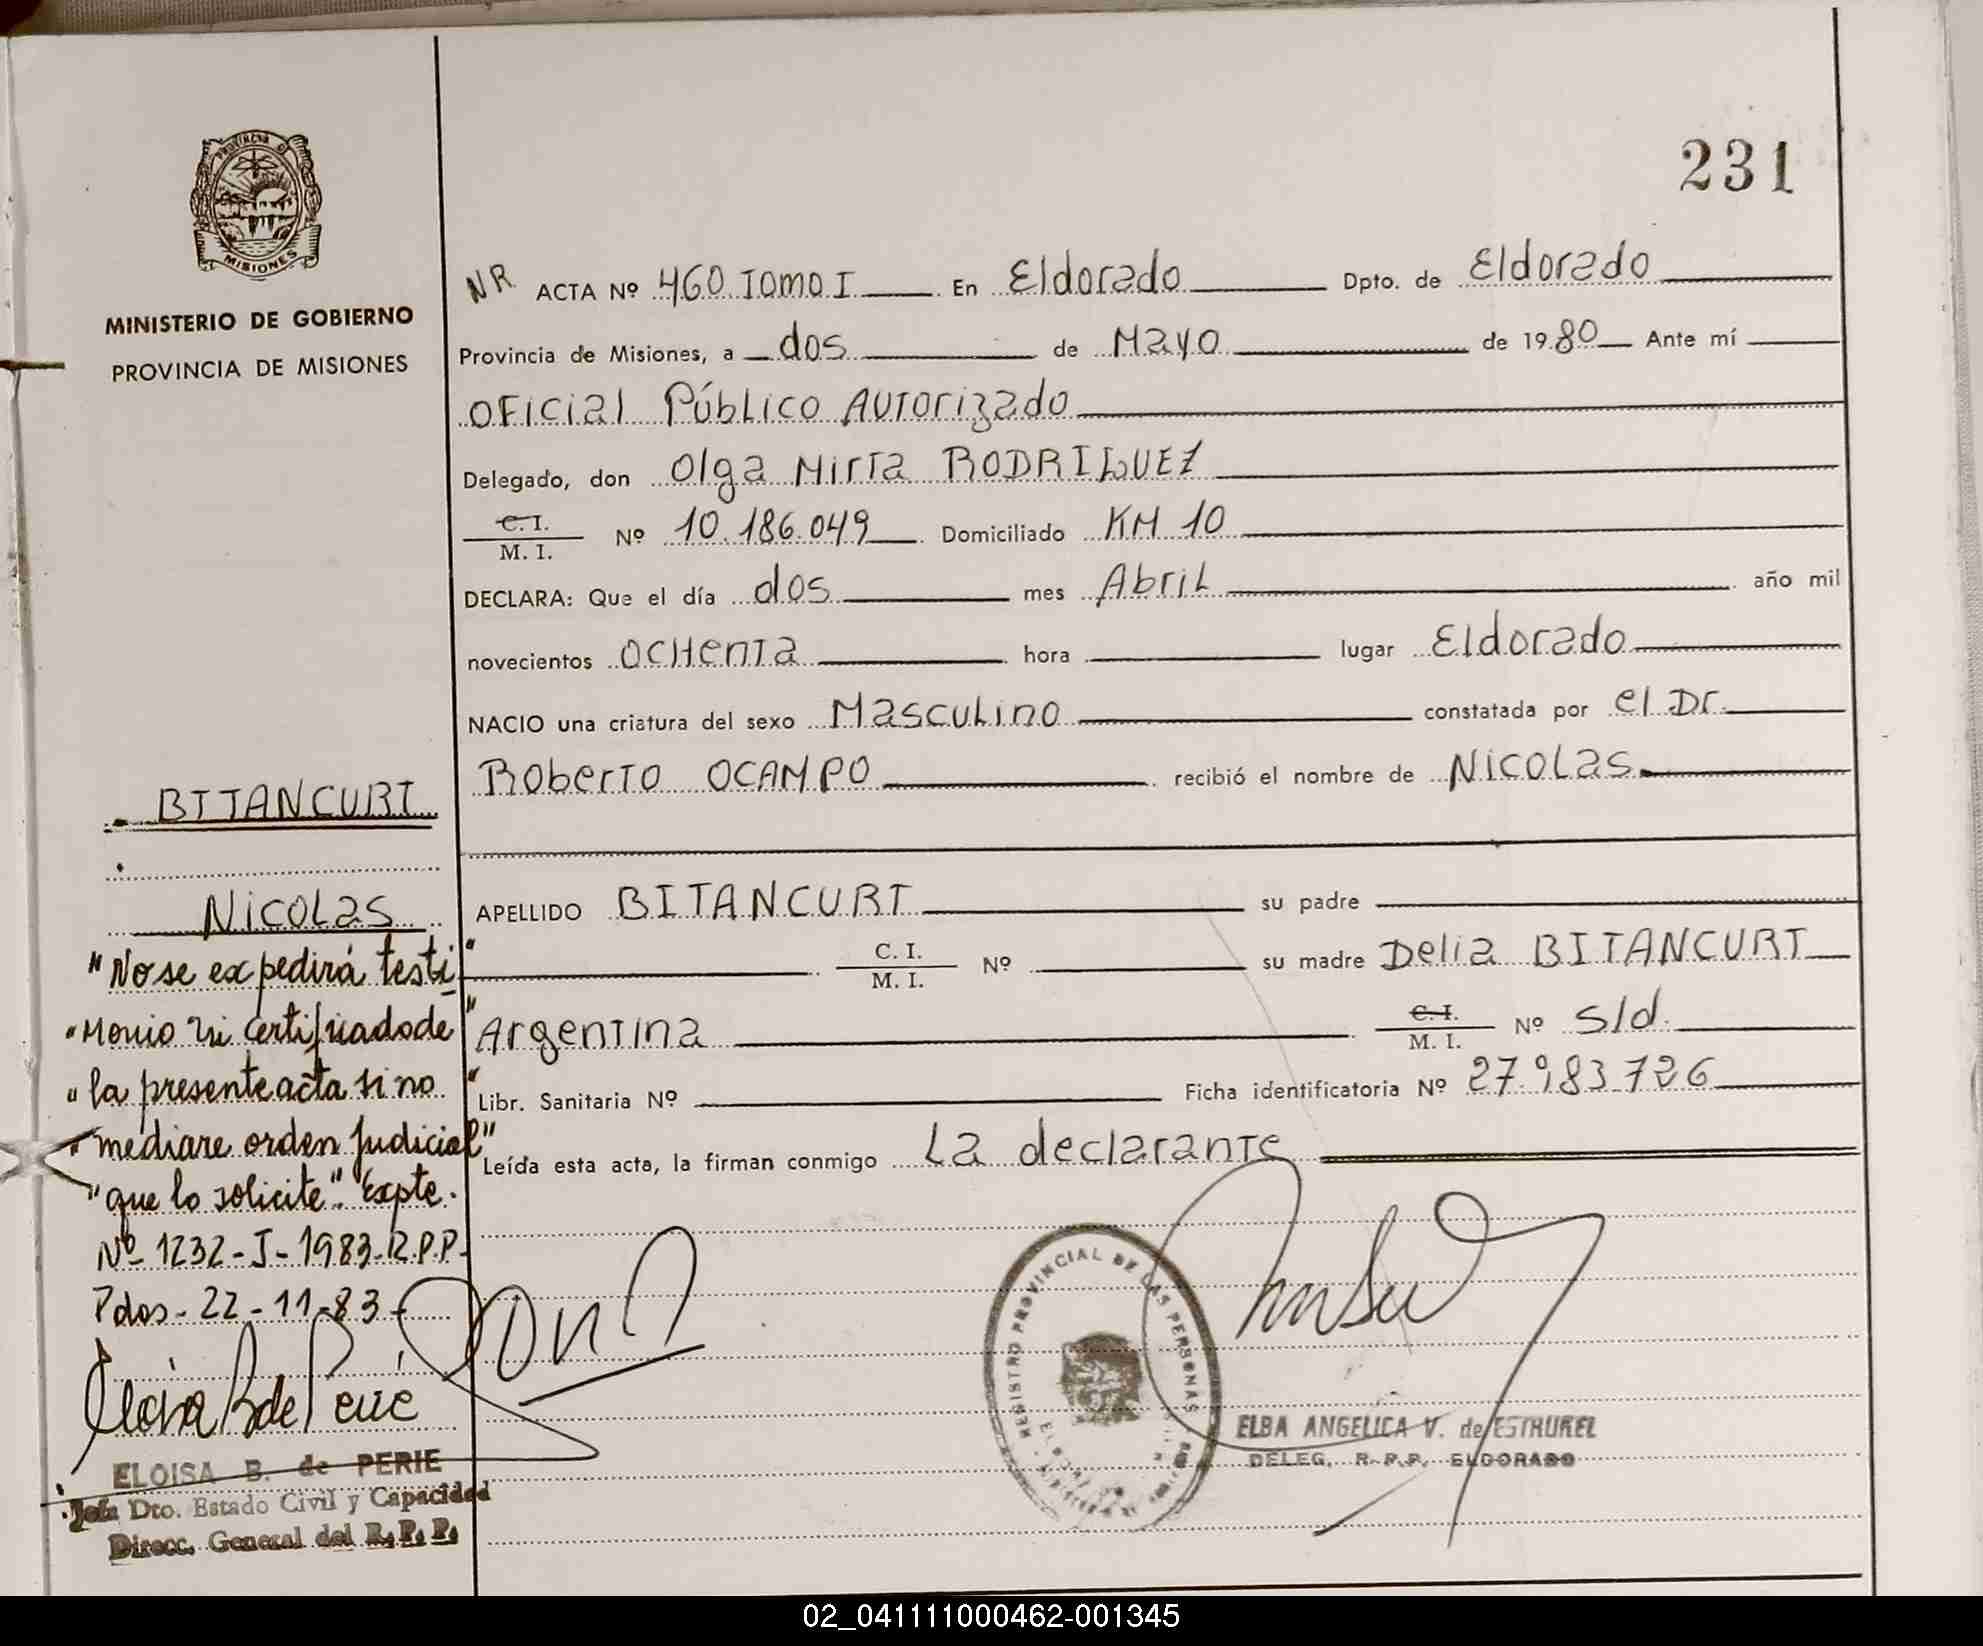 231
PROVINCIA DE
MISIONES
MINISTERIO DE GOBIERNO
PROVINCIA DE MISIONES
NR ACTA Nº 460 Tomo I En Eldorado Dpto. de Eldorado
Provincia de Misiones, a dos de Mayo de 1980 Ante mí
Oficial Público Autorizado
Delegado, don Olga Mirta RODRIGUEZ
C. I.
M. I. Nº 10.186.049 Domiciliado KM 10
DECLARA: Que el día dos mes Abril año mil
novecientos ochenta hora lugar Eldorado
NACIO una criatura del sexo Masculino constatada por el Dr.
Roberto OCAMPO recibió el nombre de Nicolas
APELLIDO BITANCURT su padre
C. I.
M. I. Nº su madre Delia BITANCURT
Argentina C. I.
M. I. Nº s/d.
Libr. Sanitaria Nº Ficha identificatoria Nº 27.983.726
Leída esta acta, la firman conmigo La declarante
BITANCURT
Nicolas
"No se expedirá testi"
"monio ni certificado de"
"la presente acta si no"
"mediare orden judicial"
"que lo solicite". Expte.
Nº 1232-J-1983-R.P.P.
Pdas-22-11-83-
ELOISA B. de PERIE
Jefa Dto. Estado Civil y Capacidad
Direcc. General del R. P. P.
REGISTRO PROVINCIAL DE LAS PERSONAS
ELBA ANGELICA V. de ESTRUREL
DELEG. R.P.P. ELDORADO
02_041111000462-001345